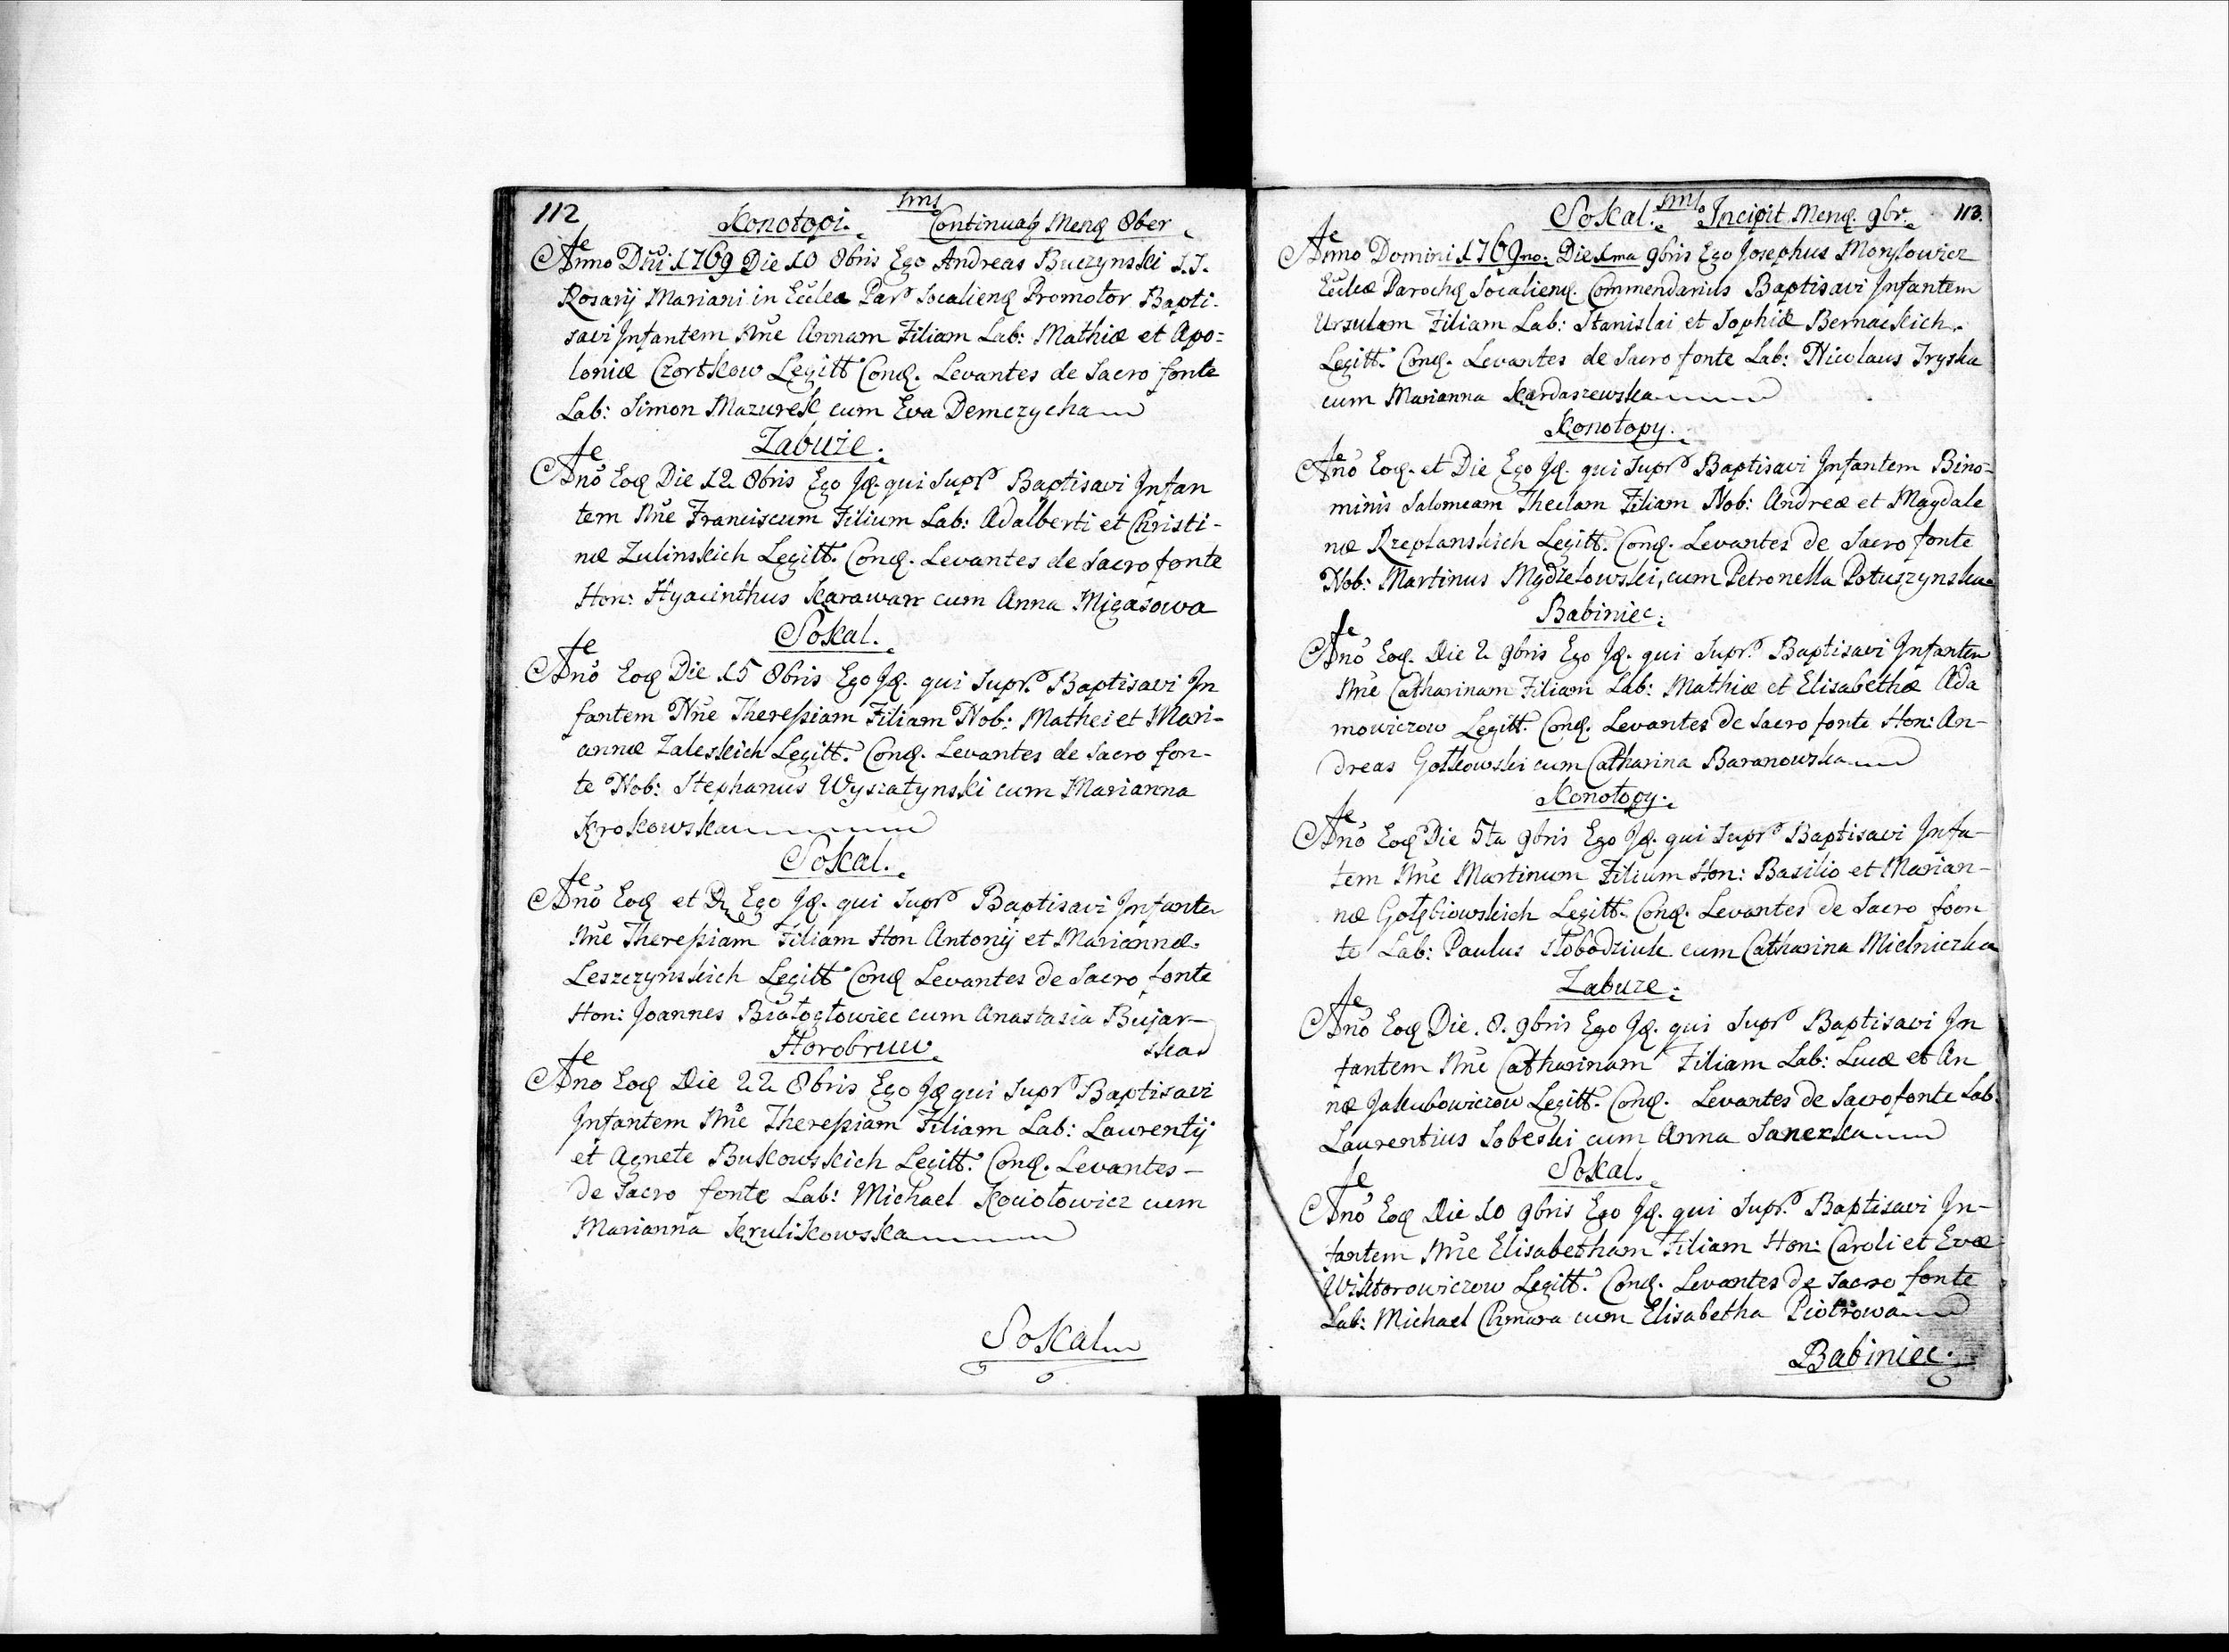 112
Konotopi. Continuat Mens 8ber
Anno Dni 1769 Die 10 8bris Ego Andreas Buczynski S.T.
Rosarij Mariani in Ecclea Par Socaliens Promotor Bapti-
savi Infantem Nne Annam Filiam Lab: Mathiæ et Apo=
loniæ Czortkow Legitt Conq. Levantes de Sacro fonte
Lab: Simon Mazurek cum Eva Demczycha
Zabuże.
Ano Eoq Die 12 8bris Ego Iq. qui Supr Baptisavi Infan
tem Nne Franciscum Filium Lab: Adalberti et Christi-
næ Zulinskich Legitt. Conq. Levantes de Sacro fonte
Hon: Hyacinthus Karawan cum Anna Migasowa
Sokal.
Ano Eoq Die 15 8bris Ego Iq. qui Supr. Baptisavi In
fantem Nne Theressiam Filiam Nob: Mathei et Mari-
annæ Zaleskich Legitt. Conq. Levantes de Sacro fon-
te Nob: Stephanus Wyszatynski cum Marianna
Krokowska
Sokal.
Ano Eoq et D Ego Iq. qui Supr Baptisavi Infante
Nne Theressiam Filiam Hon Antonij et Mariannæ
Leszczynskich Legitt Conq Levantes de Sacro fonte
Hon: Joannes Białogłowiec cum Anastasia Bujar-
ska
Horobruw
Ano Eoq Die 22 8bris Ego Iq qui Supr Baptisavi
Infantem Nne Theressiam Filiam Lab: Laurentij
et Agnete Bukowskich Legitt. Conq. Levantes-
de Sacro fonte Lab: Michael Kociołowicz cum
Marianna Krulikowska
Sokal
Sokal. Incipit Mens. 9br. 113.
Anno Domini 1769no. Die 1ma 9bris Ego Josephus Moryłowicz
Ecclæ Parochq Socaliens. Commendarius Baptisavi Infantem
Ursulam Filiam Lab: Stanislai et Sophiæ Bernackich.
Legitt. Conq. Levantes de Sacro fonte Lab: Nicolaus Tryska
cum Marianna Kardaszewska
Konotopy.
Ano Eoq. et Die Ego Iq. qui Supr Baptisavi Infantem Bino-
minis Salomeam Theclam Filiam Nob: Andreæ et Magdale
næ Rzeplanskich Legitt. Conq. Levantes de Sacro fonte
Nob: Martinus Mydłełowski, cum Petronella Potuszynska
Babiniec.
Ano Eoq. Die 2 9bris Ego Iq. qui Supr. Baptisavi Infantem
Nne Catharinam Filiam Lab: Mathiæ et Elisabethæ Ada
mowiczow Legitt. Conq. Levantes de Sacro fonte Hon: An-
dreas Gołkowski cum Catharina Baranowska
Konotopy.
Ano Eoq Die 5ta 9bris Ego Iq. qui Supr Baptisavi Infa-
tem Nne Martinum Filium Hon: Basilio et Marian-
næ Gołębiowskich Legitt. Conq. Levantes de Sacro foon
te Lab: Paulus Słobodziuk cum Catharina Mielniczka
Zabuze.
Ano Eoq Die. 8. 9bris Ego Iq. qui Supr Baptisavi In
fantem Nne Catharinam Filiam Lab: Lucæ et An
næ Jakubowiczow Legitt. Conq. Levantes de Sacro fonte Lab.
Laurentius Sobeski cum Anna Sanecka
Sokal.
Ano Eoq Die 10 9bris Ego Iq. qui Supr. Baptisavi In-
fantem Nne Elisabetham Filiam Hon: Caroli et Evæ
Wiktorowiczow Legitt. Conq. Levantes de Sacro fonte
Lab: Michael Chmara cum Elisabetha Piotrowa
Babiniec.